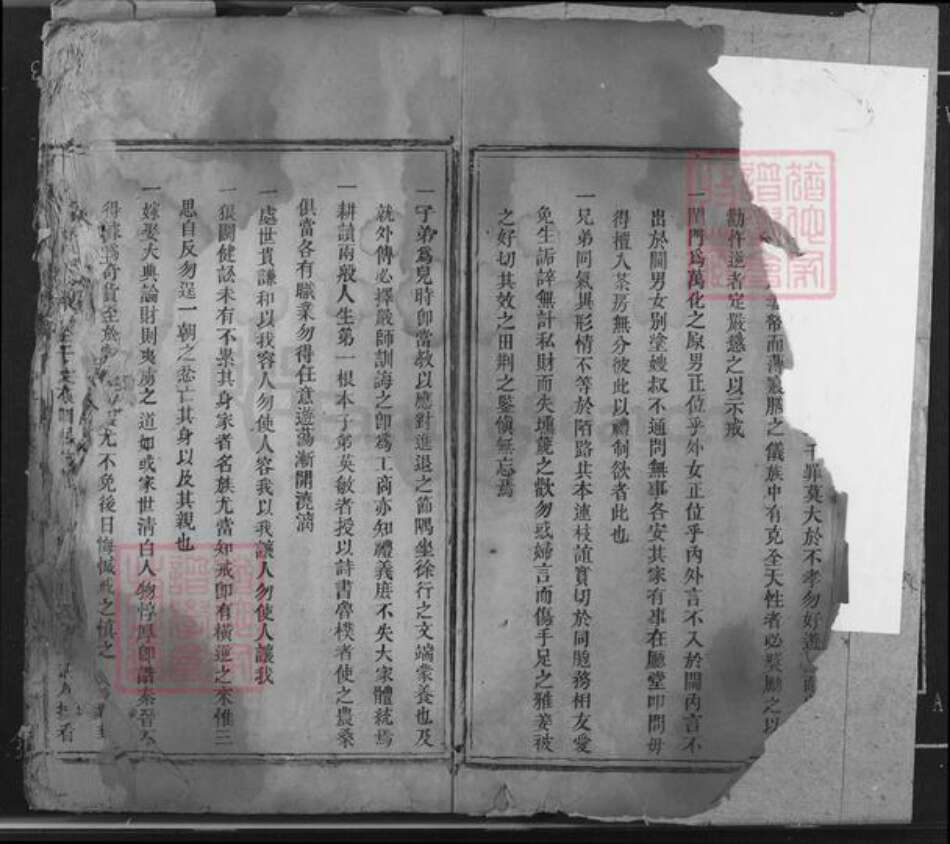 罪莫大於不孝勿好
帝而薄 之儀族中有克全天性者必獎勵之以
勸忤逆者定嚴懲之以示戒
一閨門爲萬化之原男正位乎外女正位乎內外言不入於閫內言不
出於閫男女別塗嫂叔不通問無事各安其家有事在廳堂叩問毋
得擅入茶房無分彼此以禮制欲者此也
一兄弟同氣異形情不等於陌路共本連枝誼實切於同胞務相友愛
免生詬誶無計私財而失壎篪之歡勿惑婦言而傷手足之雅姜被
之好切其效之田荆之鑒愼無忘焉
一子弟爲兒時卽當敎以應對進退之節隅坐徐行之文端蒙養也及
就外傳必擇嚴師訓誨之卽爲工商亦知禮義庶不失大家體統焉
一耕讀兩般人生第一根本子弟英敏者授以詩書魯樸者使之農桑
俱當各有職業勿得任意遊蕩漸開澆漓
一處世貴謙和以我容人勿使人容我以我讓人勿使人讓我
一狠鬬健訟未有不累其身家者名族尤當知戒卽有橫逆之來惟三
思自反勿逞一朝之忿亡其身以及其親也
一嫁娶大典論財則夷虜之道如或家世清白人物惇厚卽諧秦晉不
得 爲奇貨至於 尤不免後日悔憾戒之愼之
看